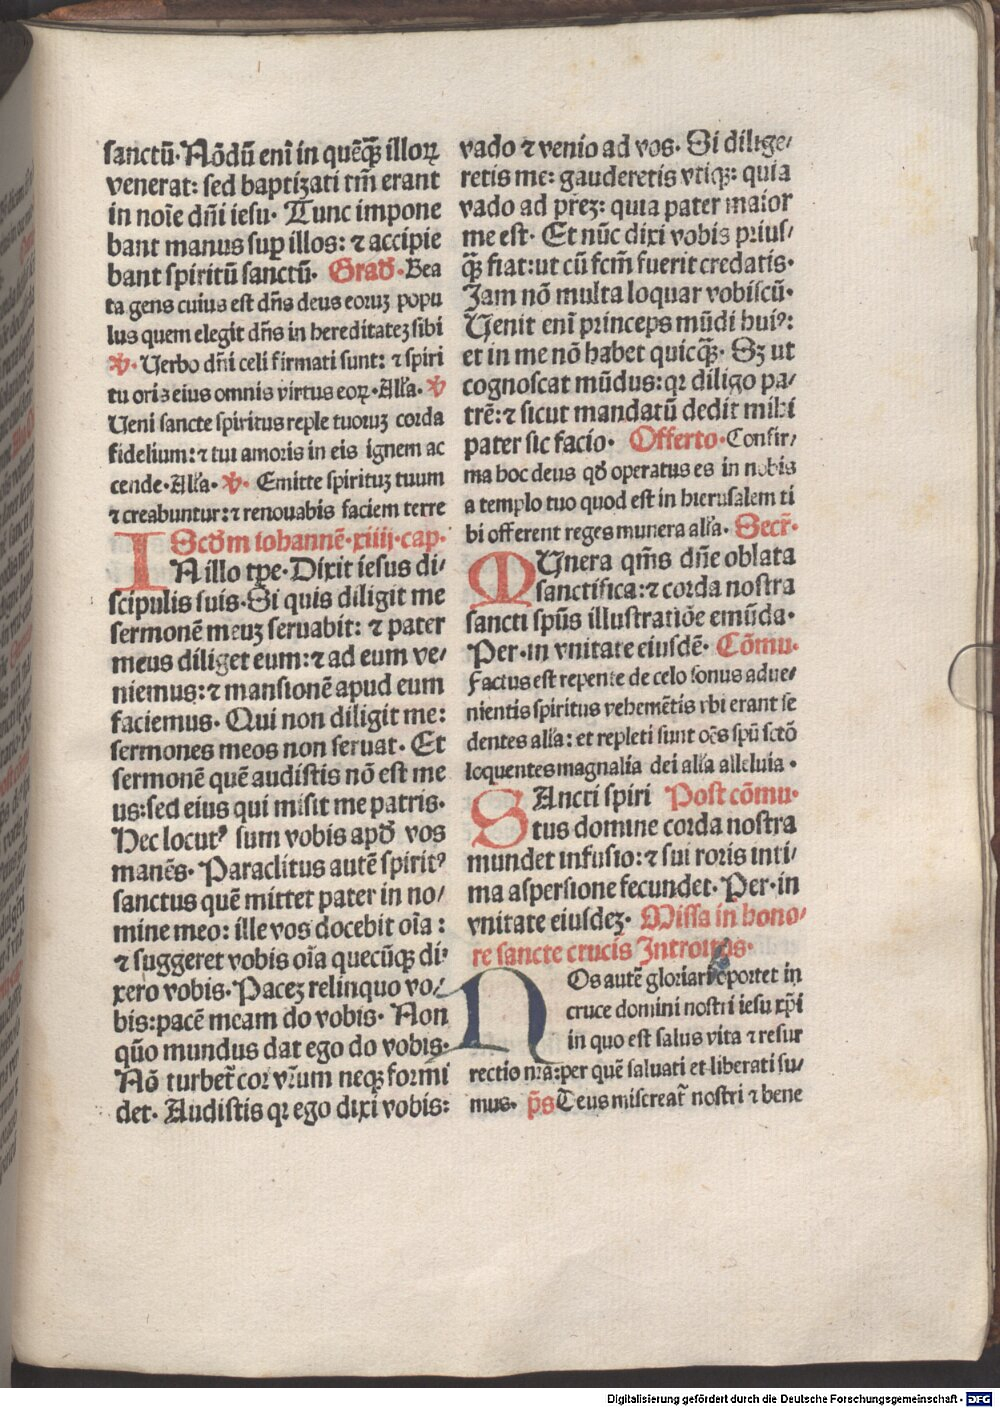 sanctū. Nōdū eni̅ in quēq̄ꝫ illoꝝ
venerat: sed baptizati tm̄ erant
in noīe dn̄i iesu. Tunc impone
bant manus suꝑ illos: ⁊ accipie
bant spiritū sanctū. Grad̄. Bea
ta gens cuius est dn̄s deus eoruꝫ popu
lus quem elegit dn̄s in hereditateꝫ sibi
℣. Uerbo dn̄i celi firmati sunt: ⁊ spiri
tu oris eius omnis virtus eoꝝ. Alľa. ℣
Ueni sancte spiritus reple tuoruꝫ corda
fidelium: ⁊ tui amoris in eis ignem ac
cende. Alľa. ℣. Emitte spirituꝫ tuum
⁊ creabuntur: ⁊ renouabis faciem terre
Scd̄m iohannē. xiiij. cap.
IN illo tꝑe. Dixit iesus di⸗
scipulis suis. Si quis diligit me
sermonē meuꝫ seruabit: ⁊ pater
meus diliget eum: ⁊ ad eum ve⸗
niemus: ⁊ mansionē apud eum
faciemus. Qui non diligit me:
sermones meos non seruat. Et
sermonē quē audistis nō est me
us: sed eius qui misit me patris.
Hec locutꝰ sum vobis apd̄ vos
manēs. Paraclitus autē spiritꝰ
sanctus quē mittet pater in no⸗
mine meo: ille vos docebit oīa:
⁊ suggeret vobis oīa quecūqꝫ di⸗
xero vobis. Paceꝫ relinquo vo⸗
bis: pacē meam do vobis. Non
quō mundus dat ego do vobis.
Nō turbet̄ cor vr̄um neqꝫ formi
det. Audistis qꝛ ego dixi vobis:
vado ⁊ venio ad vos. Si dilige⸗
retis me: gauderetis vtiqꝫ: quia
vado ad pr̄eꝫ: quia pater maior
me est. Et nūc dixi vobis prius⸗
q̄ꝫ fiat: ut cū fcm̄ fuerit credatis.
Jam nō multa loquar vobiscū.
Uenit eni̅ princeps mūdi huiꝰ:
et in me nō habet quicq̄ꝫ. Sꝫ ut
cognoscat mūdus: qꝛ diligo pa⸗
trē: ⁊ sicut mandatū dedit mihi
pater sic facio. Offerto. Confir⸗
ma hoc deus qd̄ operatus es in nobis
a templo tuo quod est in hierusalem ti
bi offerent reges munera alľa. Secr̄.
MUnera qm̄s dn̄e oblata
sanctifica: ⁊ corda nostra
sancti spūs illustratiōe emūda.
Per. in vnitate eiusdē. Cōmu.
Factus est repente de celo sonus adue⸗
nientis spiritus vehemētis vbi erant se
dentes alľa: et repleti sunt oēs spū sctō
loquentes magnalia dei alľa alleluia.
SAncti spiri Post cōmu.
tus domine corda nostra
mundet infusio: ⁊ sui roris inti⸗
ma aspersione fecundet. Per. in
vnitate eiusdeꝫ. Missa in hono⸗
re sancte crucis Introitus.
NOs autē gloriari oportet in
cruce domini nostri iesu xp̄i
in quo est salus vita ⁊ resur
rectio nr̄a: per quē saluati et liberati su⸗
mus. p̄s Deus misereat̄ nostri ⁊ bene
Digitalisierung gefördert durch die Deutsche Forschungsgemeinschaft - DFG